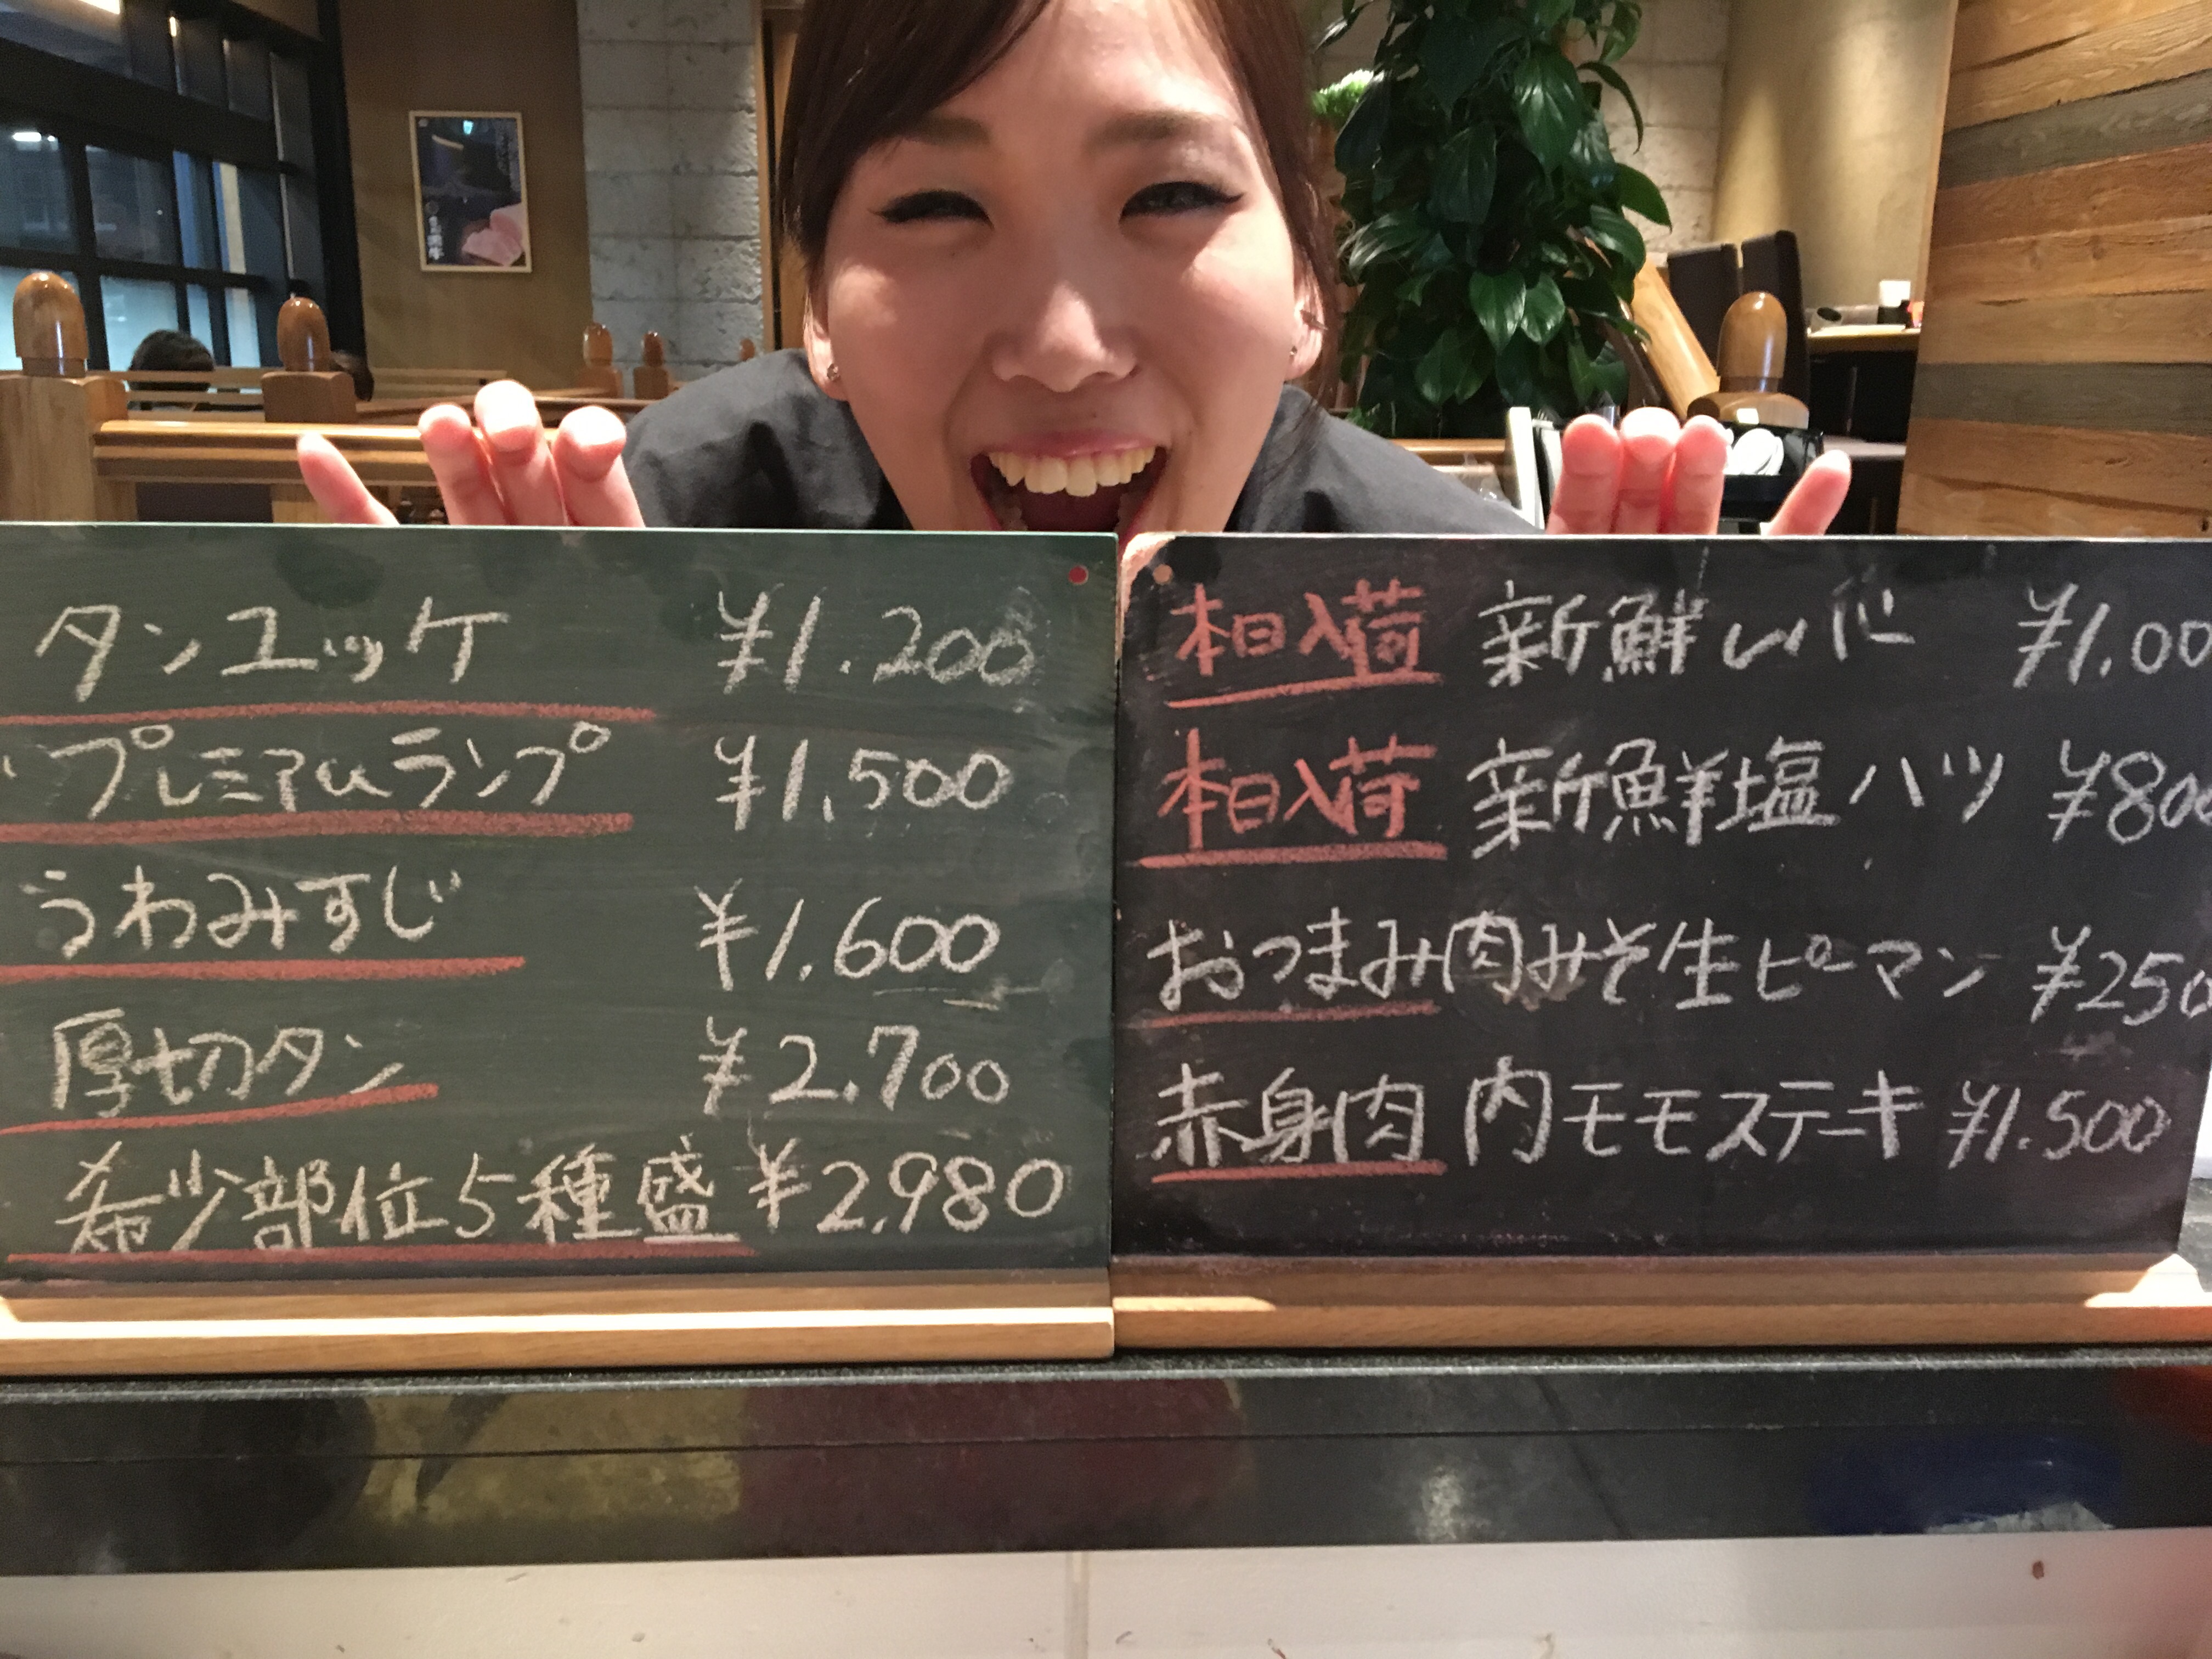 タンユッケ ¥1.200
プレミアムランプ ¥1,500
うわみすじ ¥1,600
厚切タン ¥2.700
希少部位5種盛 ¥2,980
本日入荷 新鮮レバー ¥1,00
本日入荷 新鮮塩ハツ ¥800
おつまみ肉みそ生ピーマン ¥250
赤身肉 内モモステーキ ¥1.500